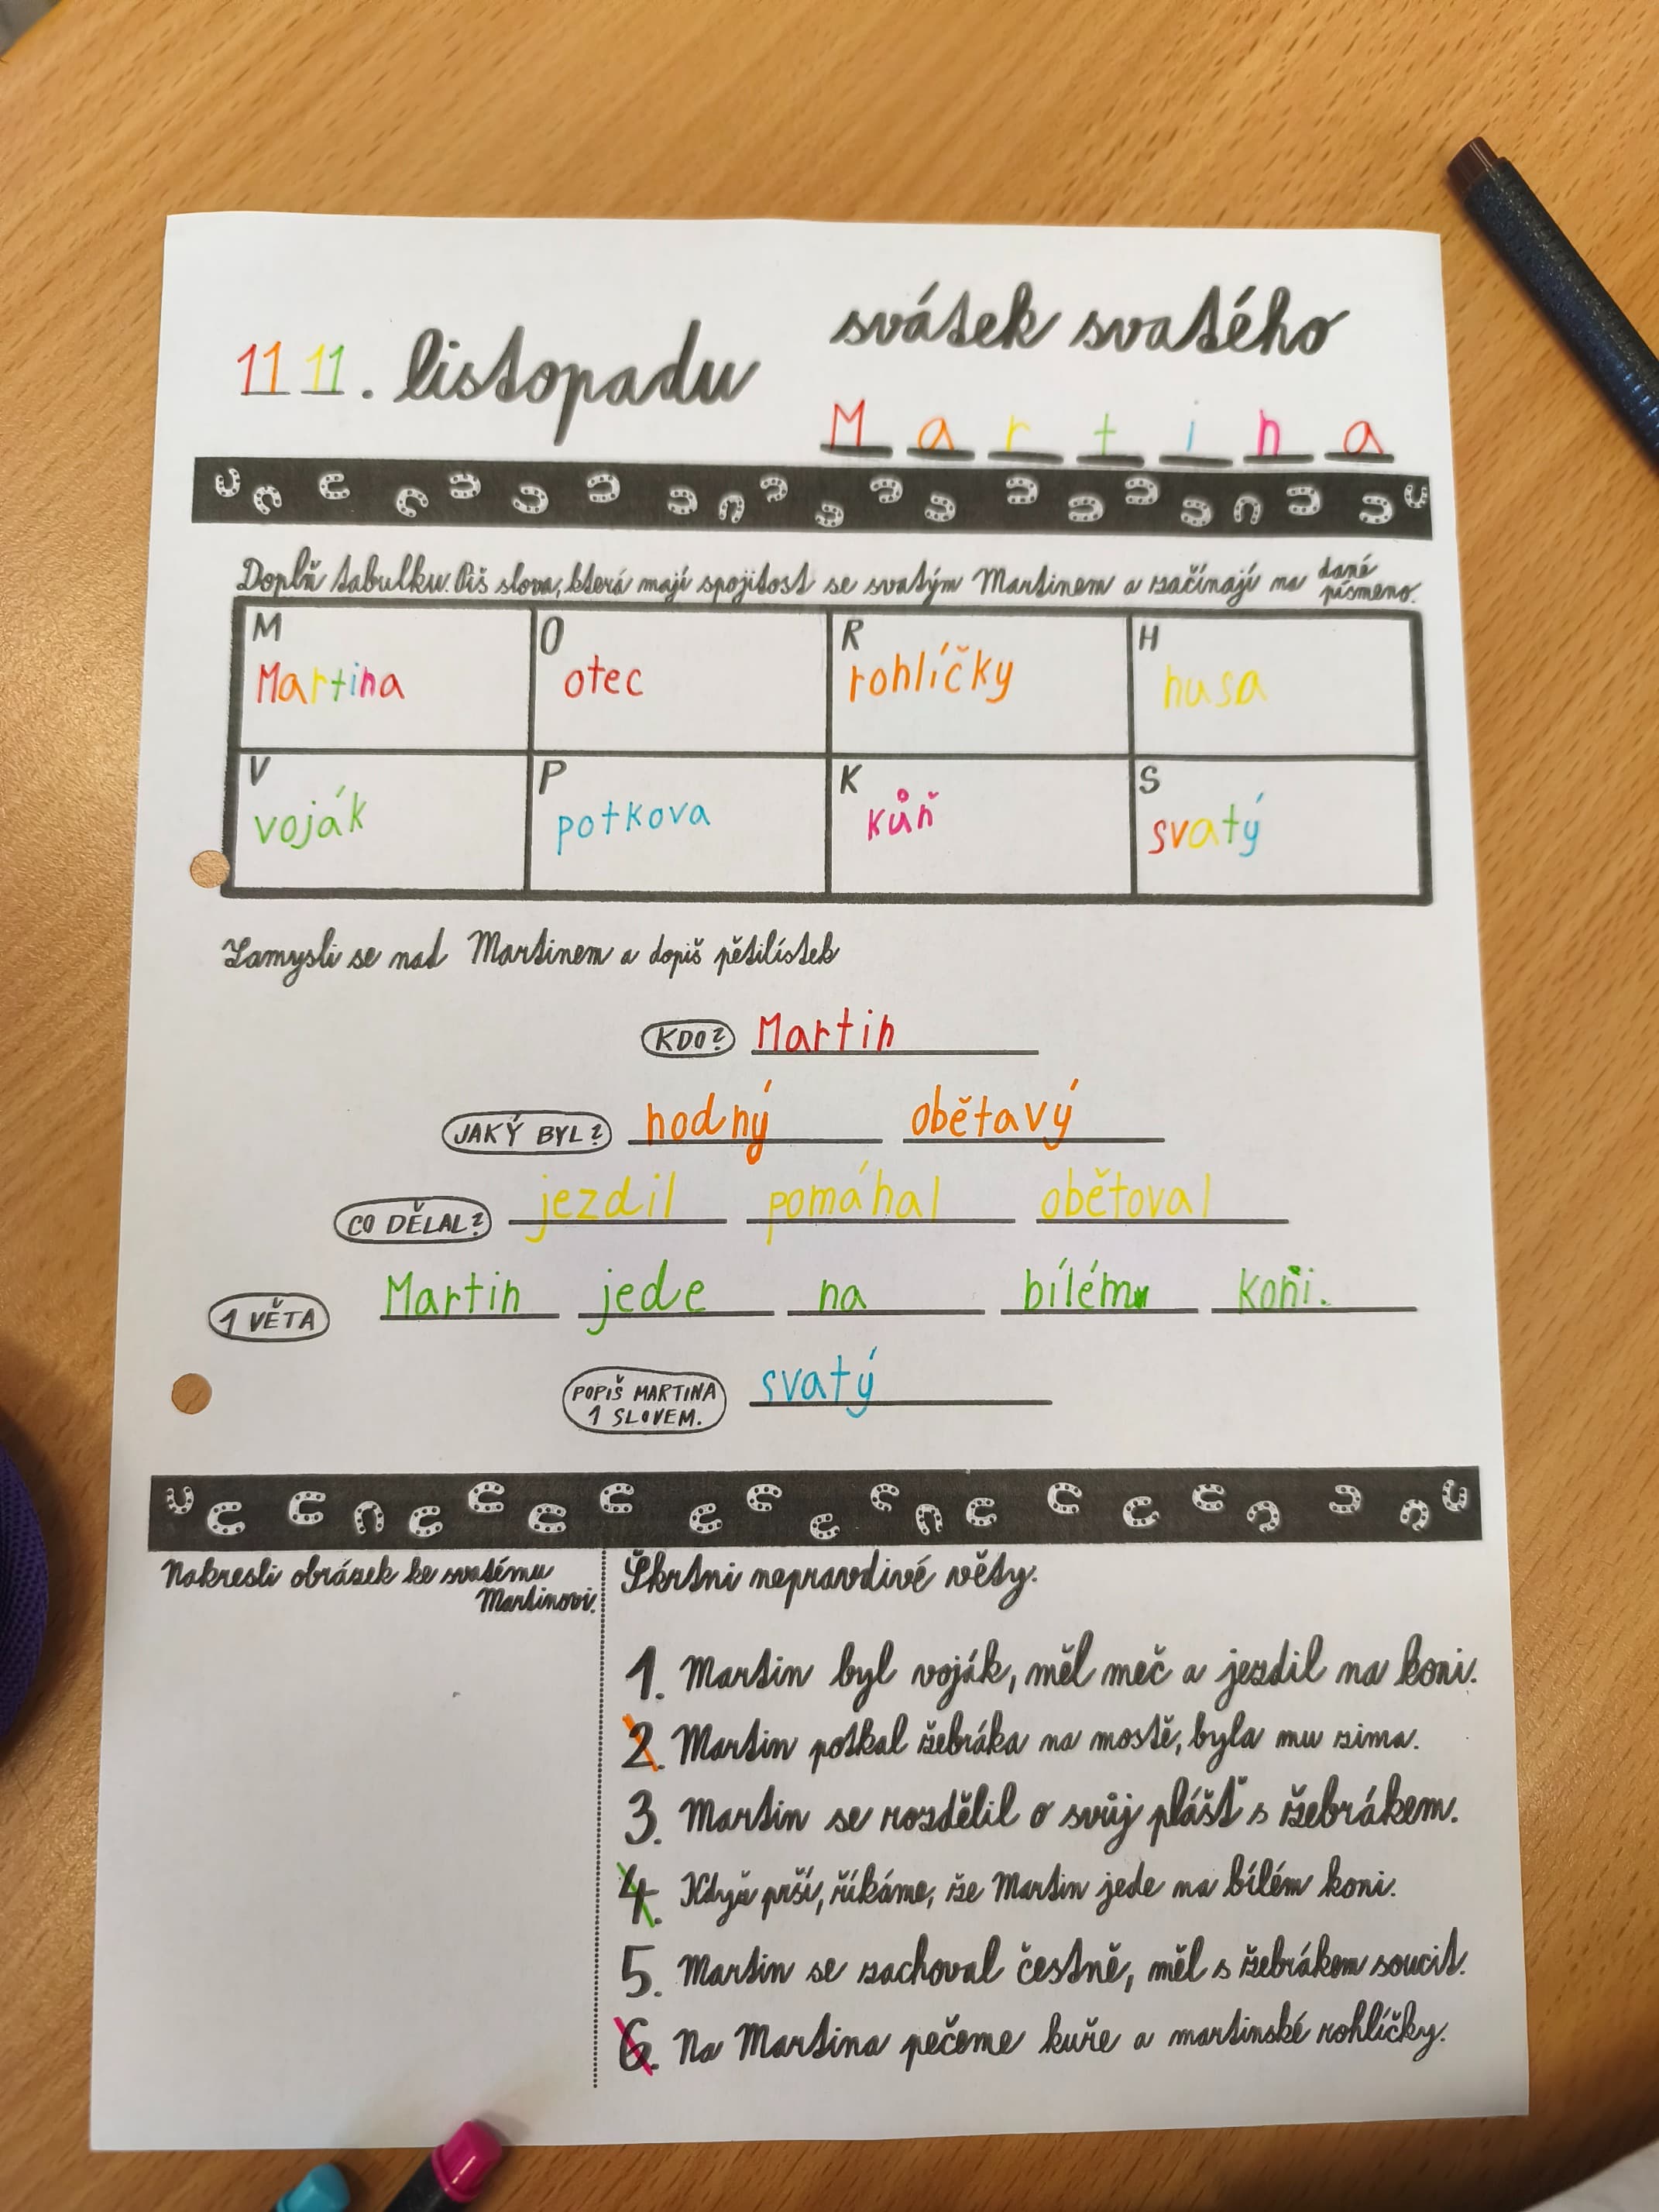 1111. listopadu
svátek svatého
Martina
Doplň tabulku. Piš slova, která mají spojitost se svatým Martinem a začínají na dané písmeno.
M O R H
Martina otec rohlíčky husa
V P K S
voják potkova kůň svatý
Zamysli se nad Martinem a dopiš pětilístek
KDO? Martin
JAKÝ BYL? hodný obětavý
CO DĚLAL? jezdil pomáhal obětoval
1 VĚTA Martin jede na bílém koni.
POPIŠ MARTINA
1 SLOVEM. svatý
Nakresli obrázek ke svatému
Martinovi.
Škrtni nepravdivé věty.
1. Martin byl voják, měl meč a jezdil na koni.
2. Martin potkal žebráka na mostě, byla mu zima.
3. Martin se rozdělil o svůj plášť s žebrákem.
4. Když prší, říkáme, že Martin jede na bílém koni.
5. Martin se zachoval čestně, měl s žebrákem soucit.
6. Na Martina pečeme kuře a martinské rohlíčky.